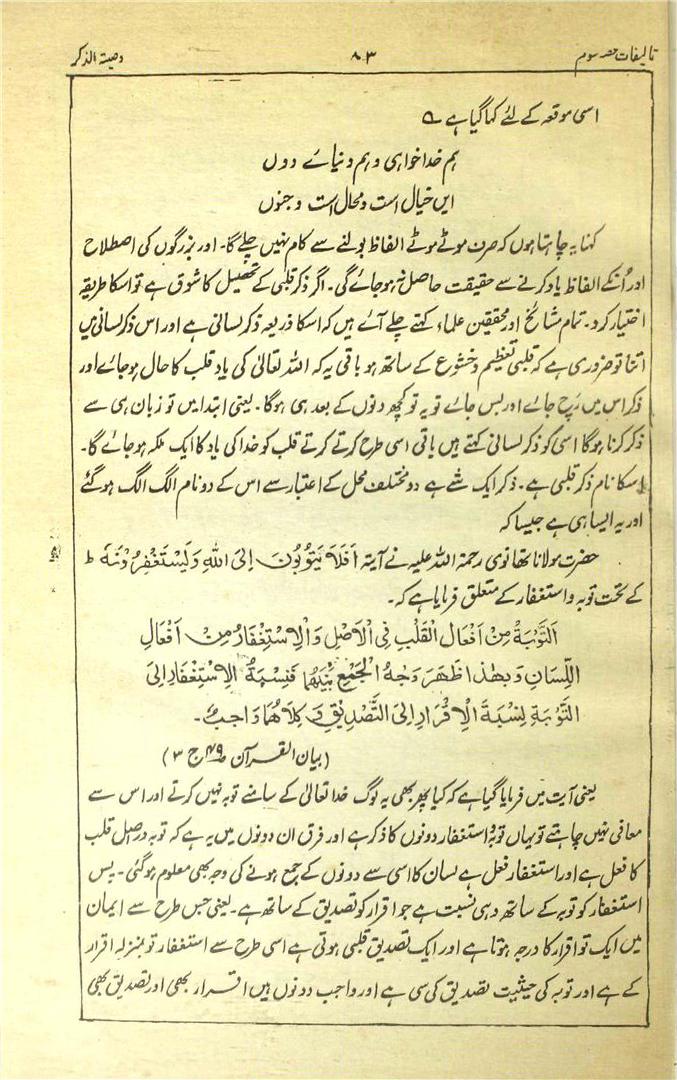 تالیفات حصہ سوم ۸۳ وصیۃ الذکر
اسی موقعہ کے لئے کہا گیا ہے ؎
ہم خدا خواہی و ہم دنیائے دوں
ایں خیال است و محال است و جنوں
کہنا یہ چاہتا ہوں کہ صرف موٹے موٹے الفاظ بولنے سے کام نہیں چلے گا۔ اور بزرگوں کی اصطلاح
اور اُنکے الفاظ یاد کرنے سے حقیقت حاصل نہ ہو جائے گی۔ اگر ذکر قلبی کے تحصیل کا شوق ہے تو اسکا طریقہ
اختیار کرو۔ تمام مشائخ اور محققین علماء کہتے چلے آئے ہیں کہ اسکا ذریعہ ذکر لسانی ہے اور اس ذکر لسانی میں
اتنا تو ضروری ہے کہ قلبی تعظیم و خشوع کے ساتھ ہو باقی یہ کہ اللہ تعالیٰ کی یاد قلب کا حال ہو جائے اور
ذکر اس میں رَچ جائے اور بس جائے تو یہ تو کچھ دنوں کے بعد ہی ہوگا۔ یعنی ابتدا میں تو زبان ہی سے
ذکر کرنا ہوگا اسی کو ذکر لسانی کہتے ہیں باقی اسی طرح کرتے کرتے قلب کو خدا کی یاد کا ایک ملکہ ہو جائے گا۔
اسکا نام ذکر قلبی ہے۔ ذکر ایک شے ہے دو مختلف محل کے اعتبار سے اس کے دو نام الگ الگ ہو گئے
اور یہ ایسا ہی ہے جیسا کہ
حضرت مولانا تھانوی رحمۃ اللہ علیہ نے آیۃ اَفَلَا یَتُوْبُوْنَ اِلَی اللّٰہِ وَیَسْتَغْفِرُوْنَہٗ ط
کے تحت توبہ و استغفار کے متعلق فرمایا ہے کہ۔
اَلتَّوْبَۃُ مِنْ اَفْعَالِ الْقَلْبِ فِی الْاَصْلِ وَالْاِسْتِغْفَارُ مِنْ اَفْعَالِ
اللِّسَانِ وَبِھٰذَا ظَھَرَ وَجْہُ الْجَمْعِ بَیْنَھُمَا فَنِسْبَۃُ الْاِسْتِغْفَارِ اِلَی
التَّوْبَۃِ لِنِسْبَۃَ الْاِقْرَارِ اِلَی التَّصْدِیْقِ وَکِلَاھُمَا وَاجِبٌ۔
(بیان القرآن ص۴۹ ج ۳)
یعنی آیت میں فرمایا گیا ہے کہ کیا پھر بھی یہ لوگ خدا تعالیٰ کے سامنے توبہ نہیں کرتے اور اس سے
معافی نہیں چاہتے تو یہاں توبہ و استغفار دونوں کا ذکر ہے اور فرق ان دونوں میں یہ ہے کہ توبہ در اصل قلب
کا فعل ہے اور استغفار فعل ہے لسان کا اسی سے دونوں کے جمع ہونے کی وجہ بھی معلوم ہو گئی۔ پس
استغفار کو توبہ کے ساتھ وہی نسبت ہے جو اقرار کو تصدیق کے ساتھ ہے۔ یعنی جس طرح سے ایمان
میں ایک تو اقرار کا درجہ ہوتا ہے اور ایک تصدیق قلبی ہوتی ہے اسی طرح سے استغفار تو بمنزلہ اقرار
کے ہے اور توبہ کی حیثیت تصدیق کی سی ہے اور واجب دونوں ہیں اقرار بھی اور تصدیق بھی